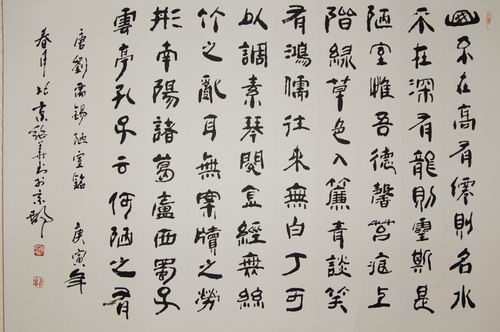 山不在高有僊則名水
不在深有龍則靈斯是
陋室惟吾德馨苔痕上
階綠草色入簾青談笑
有鴻儒往來無白丁可
以調素琴閱金經無絲
竹之亂耳無案牘之勞
形南陽諸葛廬西蜀子
雲亭孔子云何陋之有
唐劉禹錫陋室銘 庚寅年
春月